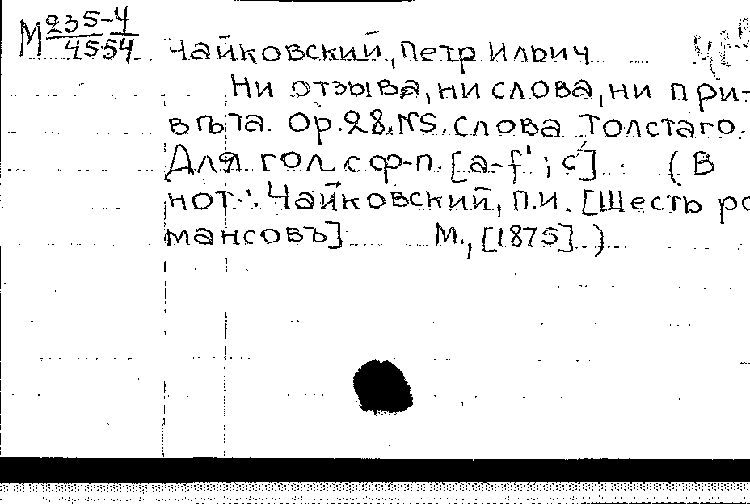 М 235-4
4554
Чайковский, Петр Ильич
Ни отзыва, ни слова, ни при-
вѣта. Op.28.N5. Слова Толстаго.
Для гол. с ф-п. [a-f'; c'] (В
нот.: Чайковский, П.И. [Шесть ро
мансовъ] М., [1875].)